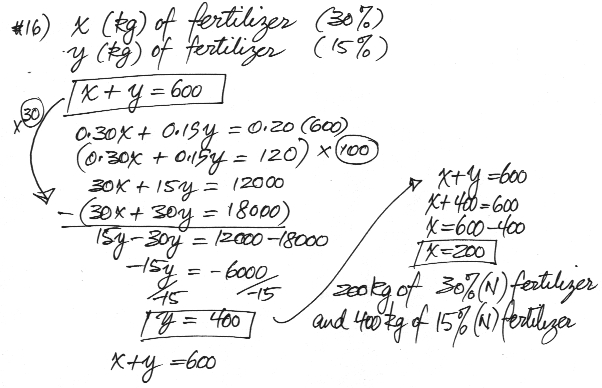 #16) x (kg) of fertilizer (30%)
y (kg) of fertilizer (15%)
x + y = 600
x 30
0.30x + 0.15y = 0.20 (600)
(0.30x + 0.15y = 120) x 100
30x + 15y = 12000
- (30x + 30y = 18000)
15y - 30y = 12000 - 18000
-15y = -6000
/-15 /-15
y = 400
x + y = 600
x + y = 600
x + 400 = 600
x = 600 - 400
x = 200
200kg of 30% (N) fertilizer
and 400kg of 15% (N) fertilizer